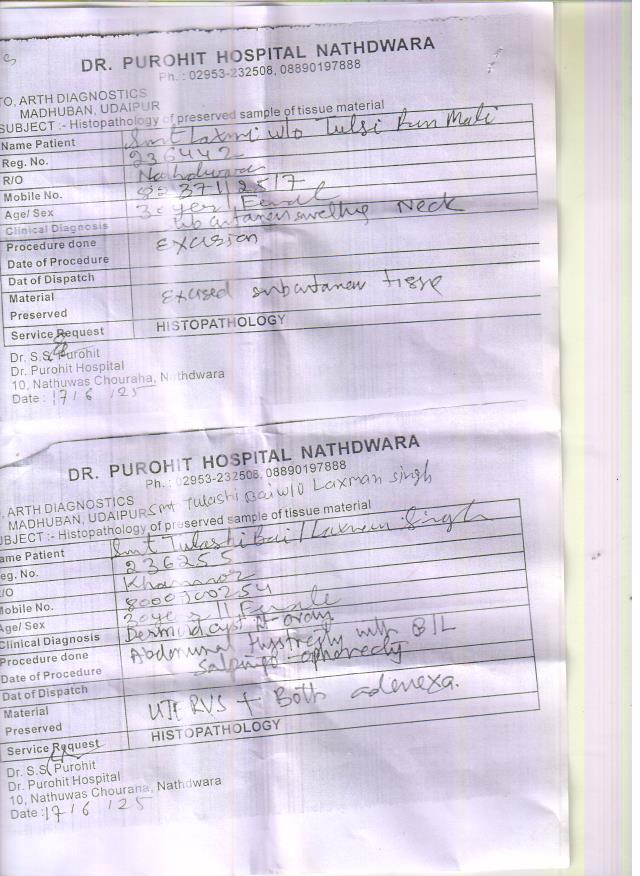 DR. PUROHIT HOSPITAL NATHDWARA
Ph. : 02953-232508, 08890197888
TO, ARTH DIAGNOSTICS
MADHUBAN, UDAIPUR
SUBJECT :- Histopathology of preserved sample of tissue material
Name Patient Smt Laxmi w/o Tulsi Ram Mali
Reg. No. 236442
R/O Nathdwara
Mobile No.
Age/ Sex 30 year / Female
Clinical Diagnosis subcutaneous swelling Neck
Procedure done Excision
Date of Procedure
Dat of Dispatch
Material Excised subcutaneous tissue
Preserved
Service Request HISTOPATHOLOGY
Dr. S.S. Purohit
Dr. Purohit Hospital
10, Nathuwas Chouraha, Nathdwara
Date : 17/6/25
DR. PUROHIT HOSPITAL NATHDWARA
Ph. : 02953-232508, 08890197888
, ARTH DIAGNOSTICS Smt Tulashi Bai w/o Laxman singh
MADHUBAN, UDAIPUR
UBJECT :- Histopathology of preserved sample of tissue material
ame Patient Smt Tulashi Bai / Laxman Singh
eg. No. 236255
/O Khamnor
Mobile No. 8000300254
Age/ Sex 30 year / Female
Clinical Diagnosis Dermoid cyst ovary
Procedure done Abdominal Hystrectomy with B/L
Date of Procedure salpingo-ophorectomy
Dat of Dispatch
Material UTERUS + Both adenexa.
Preserved
Service Request HISTOPATHOLOGY
Dr. S.S. Purohit
Dr. Purohit Hospital
10, Nathuwas Chouraha, Nathdwara
Date : 17/6/25